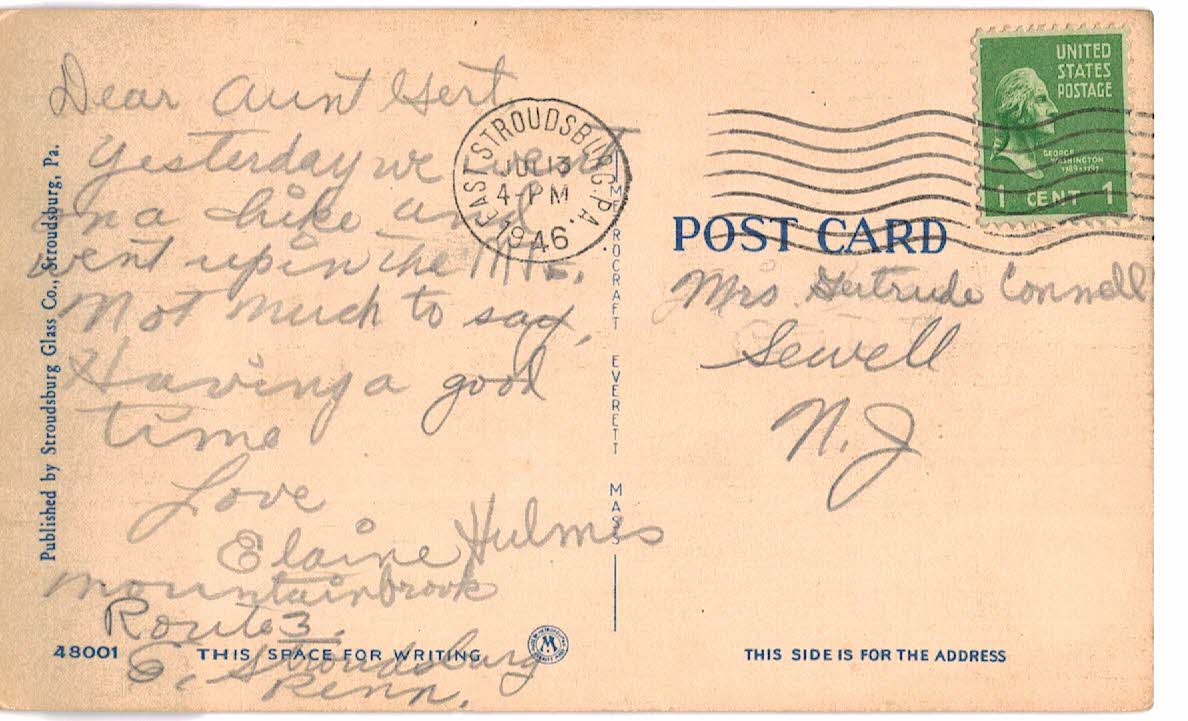 Dear Aunt Gert
Yesterday we went
on a hike and
went up in the Mts.
Not much to say,
Having a good
time
Love
Elaine Hulmes
Mountainbrook
Route 3.
E. Stroudsburg
Penn.
Published by Stroudsburg Glass Co., Stroudsburg, Pa.
48001
THIS SPACE FOR WRITING
EAST STROUDSBURG, PA.
JUL 13
4-PM
1946
METROCRAFT EVERETT MASS
UNITED
STATES
POSTAGE
GEORGE
WASHINGTON
1789-1797
1 CENT 1
POST CARD
Mrs. Gertrude Connell
Sewell
N.J
THIS SIDE IS FOR THE ADDRESS